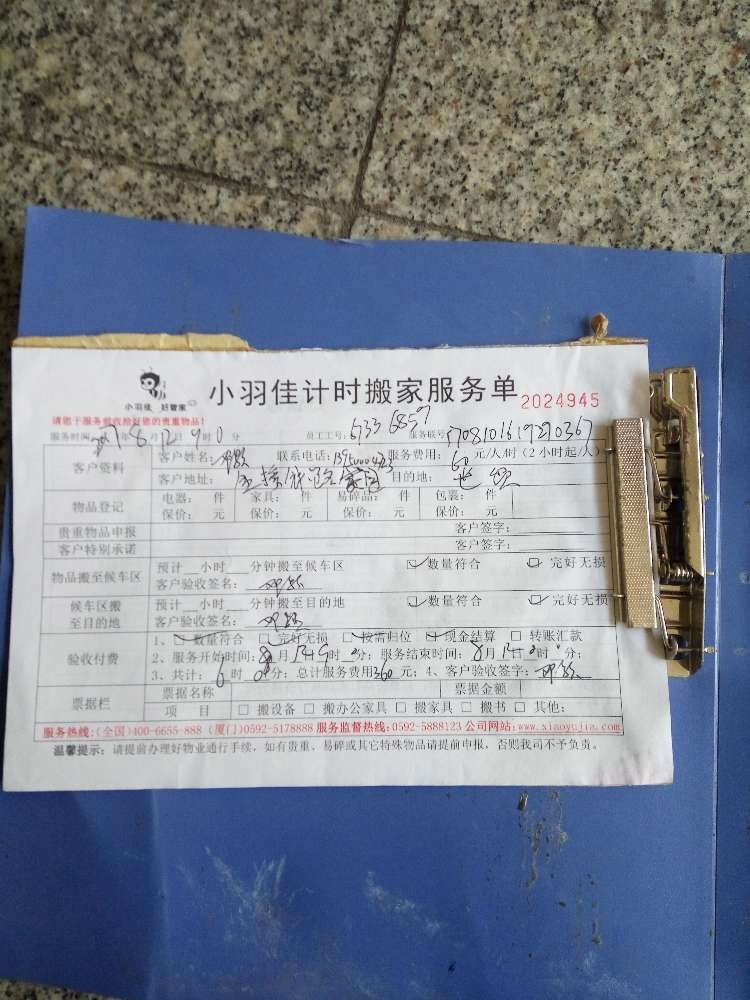 小羽佳 好管家
小羽佳计时搬家服务单 2024945
请您于服务前收拾好您的贵重物品!
服务时间: 年8月12日9时0分 员工工号: 6733 6857 服务联号: 1708101619290367
客户资料 客户姓名: 联系电话: 服务费用: 60 元/人/时(2小时起/人)
客户地址: 目的地:
物品登记 电器: 件 家具: 件 易碎品: 件 包装: 件
保价: 元 保价: 元 保价: 元 保价: 元
贵重物品申报 客户签字:
客户特别承诺 客户签字:
物品搬至候车区 预计__小时__分钟搬至候车区 ☑数量符合 ☑完好无损
客户验收签名:
候车区搬至目的地 预计__小时__分钟搬至目的地 ☑数量符合 ☑完好无损
客户验收签名:
验收付费 1、☑数量符合 ☑完好无损 ☑按需归位 ☑现金结算 □转账汇款
2、服务开始时间: 8月12日9时0分; 服务结束时间: 8月 日 时 分;
3、共计: 6时0分; 总计服务费用360元; 4、客户验收签字:
票据栏 票据名称 票据金额
项 目 □搬设备 □搬办公家具 □搬家具 □搬书 □其他:
服务热线:(全国)400-6655-888 (厦门)0592-5178888 服务监督热线:0592-5888123 公司网站:www.xiaoyujia.com
温馨提示: 请提前办理好物业通行手续, 如有贵重、易碎或其它特殊物品请提前申报, 否则我司不予负责。